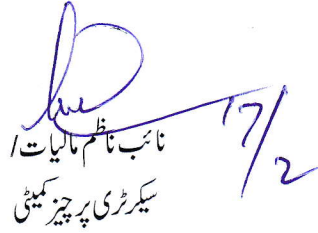 17/2
نائب ناظم مالیات/
سیکرٹری پرچیز کمیٹی